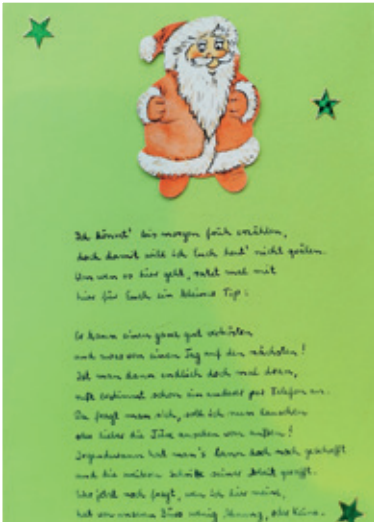 Ich könnt' bis morgen früh erzählen,
doch damit will ich Euch heut' nicht quälen.
Um wen es hier geht, ratet mal mit
hier für Euch ein kleiner Tip:
Er kann einen ganz gut vertrösten
und zwar von einem Tag auf den nächsten!
Ist man dann endlich doch mal dran,
ruft bestimmt schon ein anderer per Telefon an.
Da fragt man sich, soll ich nun lauschen
oder lieber die Türe ansehen von außen!
Irgendwann hat man's dann doch noch geschafft
und die weiteren Schritte seiner Arbeit gerafft.
Wer jetzt noch fragt, wen ich hier meine,
hat von unserem Büro wenig Ahnung, oder keine.